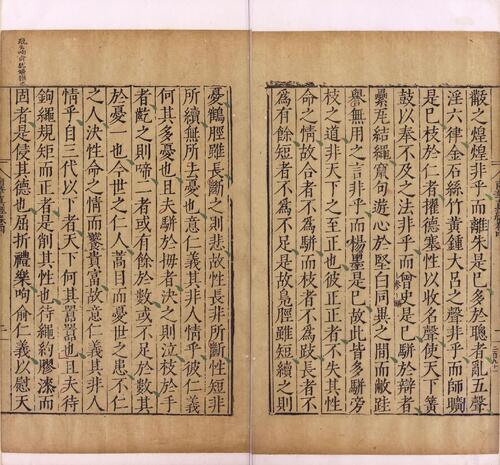 黻之煌煌非乎而離朱是已多於聰者亂五聲
淫六律金石絲竹黃鍾大呂之聲非乎而師曠
是已枝於仁者擢德塞性以收名聲使天下簧
鼓以奉不及之法非乎而曾史是已駢於辯者
纍瓦結繩竄句遊心於堅白同異之間而敝跬
譽無用之言非乎而楊墨是已故此皆多駢旁
枝之道非天下之至正也彼正正者不失其性
命之情故合者不爲駢而枝者不爲跂長者不
爲有餘短者不爲不足是故鳧脛雖短續之則
憂鶴脛雖長斷之則悲故性長非所斷性短非
所續無所去憂也意仁義其非人情乎彼仁義
何其多憂也且夫駢於拇者決之則泣枝於手
者齕之則啼二者或有餘於數或不足於數其
於憂一也今世之仁人蒿目而憂世之患不仁
之人決性命之情而饕貴富故意仁義其非人
情乎自三代以下者天下何其囂囂也且夫待
鉤繩規矩而正者是削其性也待繩約膠漆而
固者是侵其德也屈折禮樂呴俞仁義以慰天